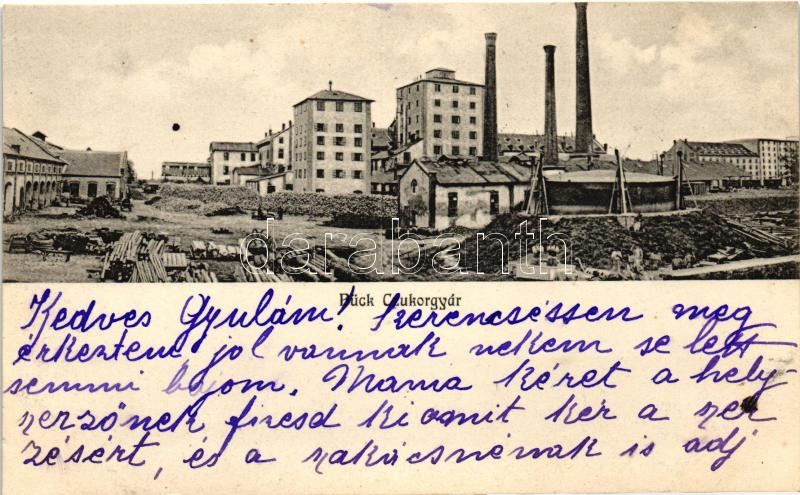 darabanth
Bück Czukorgyár
Kedves Gyulám! Szerencséssen meg
érkeztem jol vannak nekem se lett
semmi bajom. Mama kéret a hely
szerzőnek fizesd ki amit kér a szer
zésért, és a szakácsnénak is adj